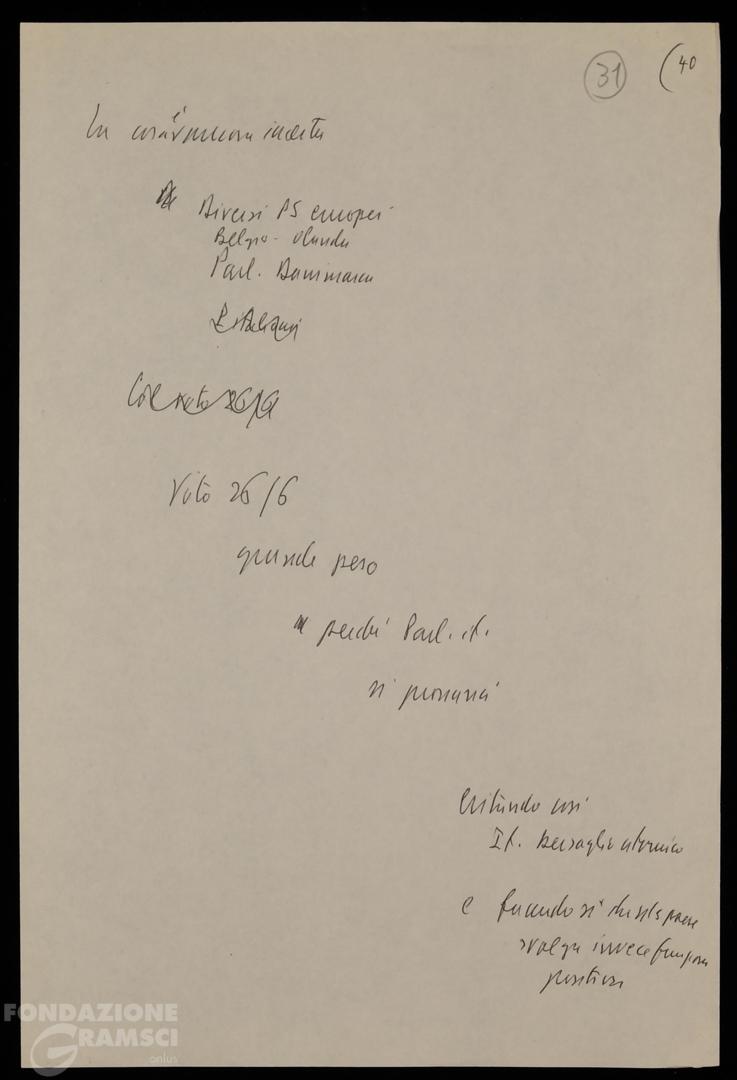 31
(40
La cosa è ancora incerta
Diversi PS europei
Belgio - Olanda
Parl. Danimarca
Voto 26/6
grande peso
perché Parl. it.
si pronunci
evitando così
It. bersaglio atomico
e facendo sì che il ns paese
svolga invece funzione
positiva
FONDAZIONE
GRAMSCI
onlus